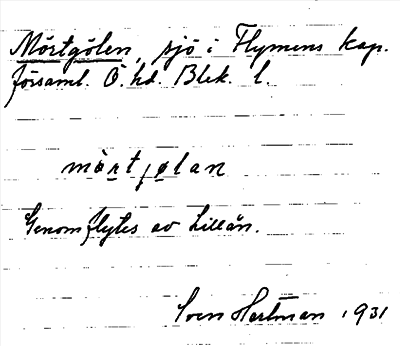 Mörtgölen, sjö i Flymens kap.
församl. Ö. hd. Blek. l.
mö̀rtjølan
Genomflytes av Lillån.
Sven Hartman 1931